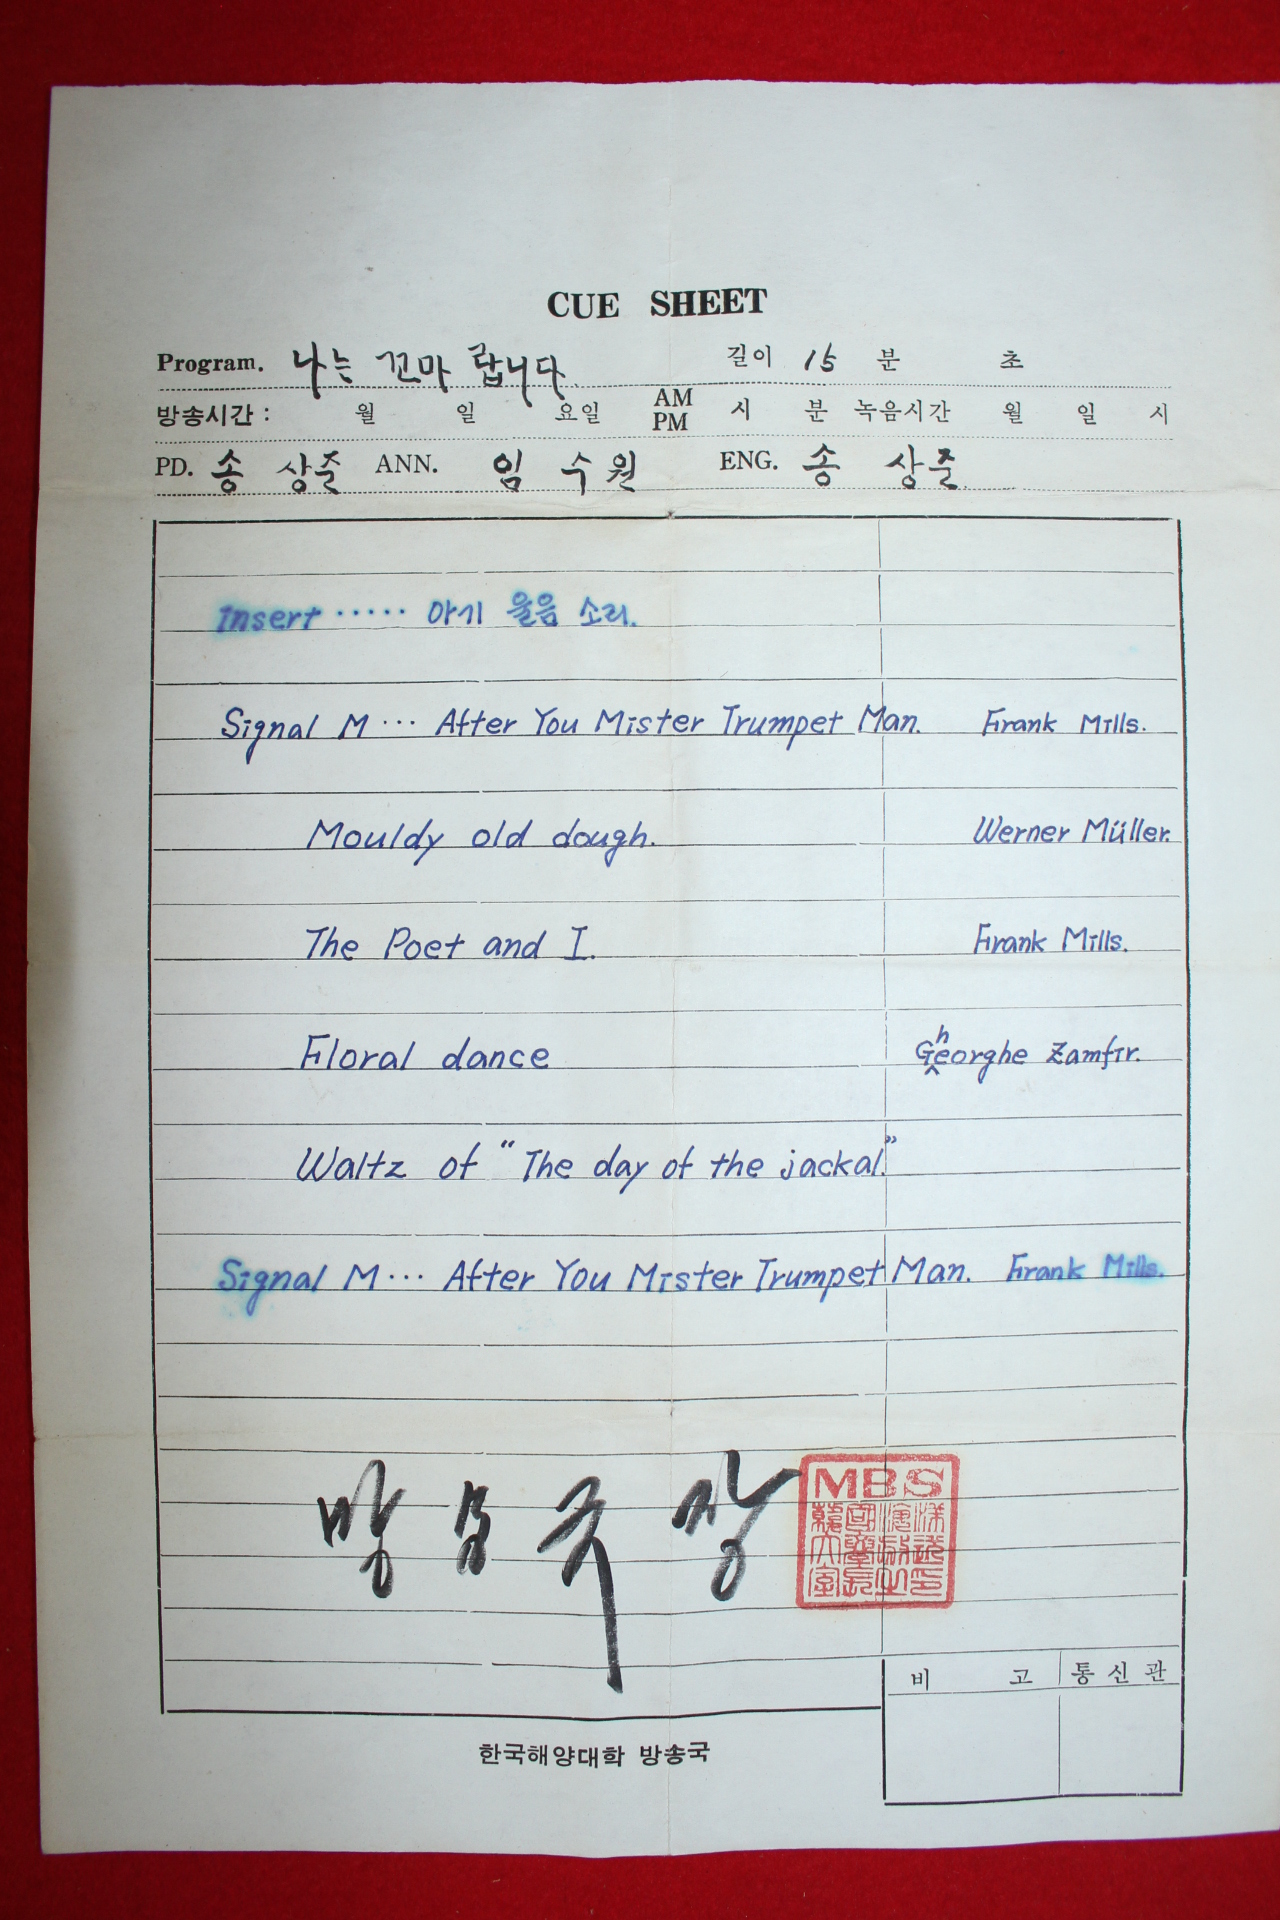 CUE SHEET
Program. 나는 꼬마 랍니다. 길이 15 분 초
방송시간 : 월 일 요일 AM PM 시 분 녹음시간 월 일 시
PD. 송 상준 ANN. 임 수원 ENG. 송 상준
Insert ····· 아기 울음 소리.
Signal M ··· After You Mister Trumpet Man. Frank Mills.
Mouldy old dough. Werner Müller.
The Poet and I. Frank Mills.
Floral dance Gheorghe Zamfir.
Waltz of “The day of the jackal.”
Signal M ··· After You Mister Trumpet Man. Frank Mills.
방송국장
MBS
비 고 통신관
한국해양대학 방송국